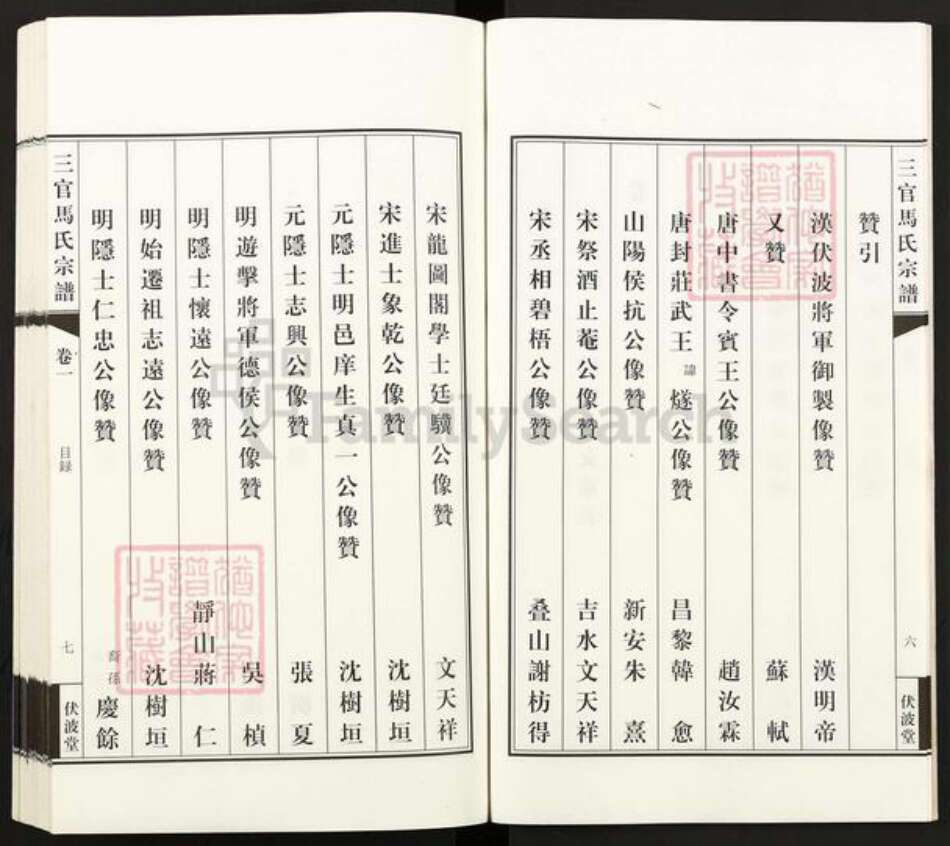 三官馬氏宗譜
六
伏波堂
贊引
漢伏波將軍御製像贊 漢明帝
又贊 蘇軾
唐中書令賓王公像贊 趙汝霖
唐封莊武王諱燧公像贊 昌黎韓愈
山陽侯抗公像贊 新安朱熹
宋祭酒止菴公像贊 吉水文天祥
宋丞相碧梧公像贊 叠山謝枋得
宋龍圖閣學士廷驥公像贊 文天祥
宋進士象乾公像贊 沈樹垣
元隱士明邑庠生真一公像贊 沈樹垣
元隱士志興公像贊 張夏
明遊擊將軍德侯公像贊 吳楨
明隱士懷遠公像贊 靜山蔣仁
明始遷祖志遠公像贊 沈樹垣
明隱士仁忠公像贊 裔孫慶餘
三官馬氏宗譜
卷一
目録
七
伏波堂
FamilySearch